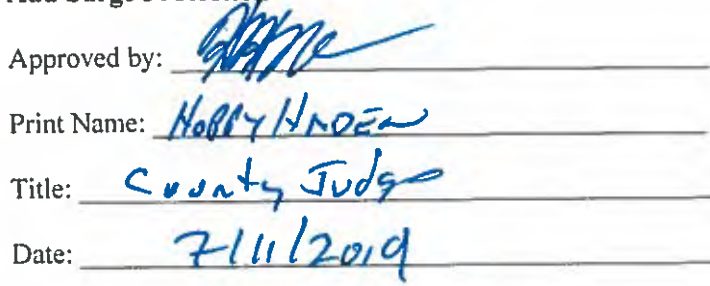 Approved by:
Print Name: Hoppy Haden
Title: County Judge
Date: 7/11/2019